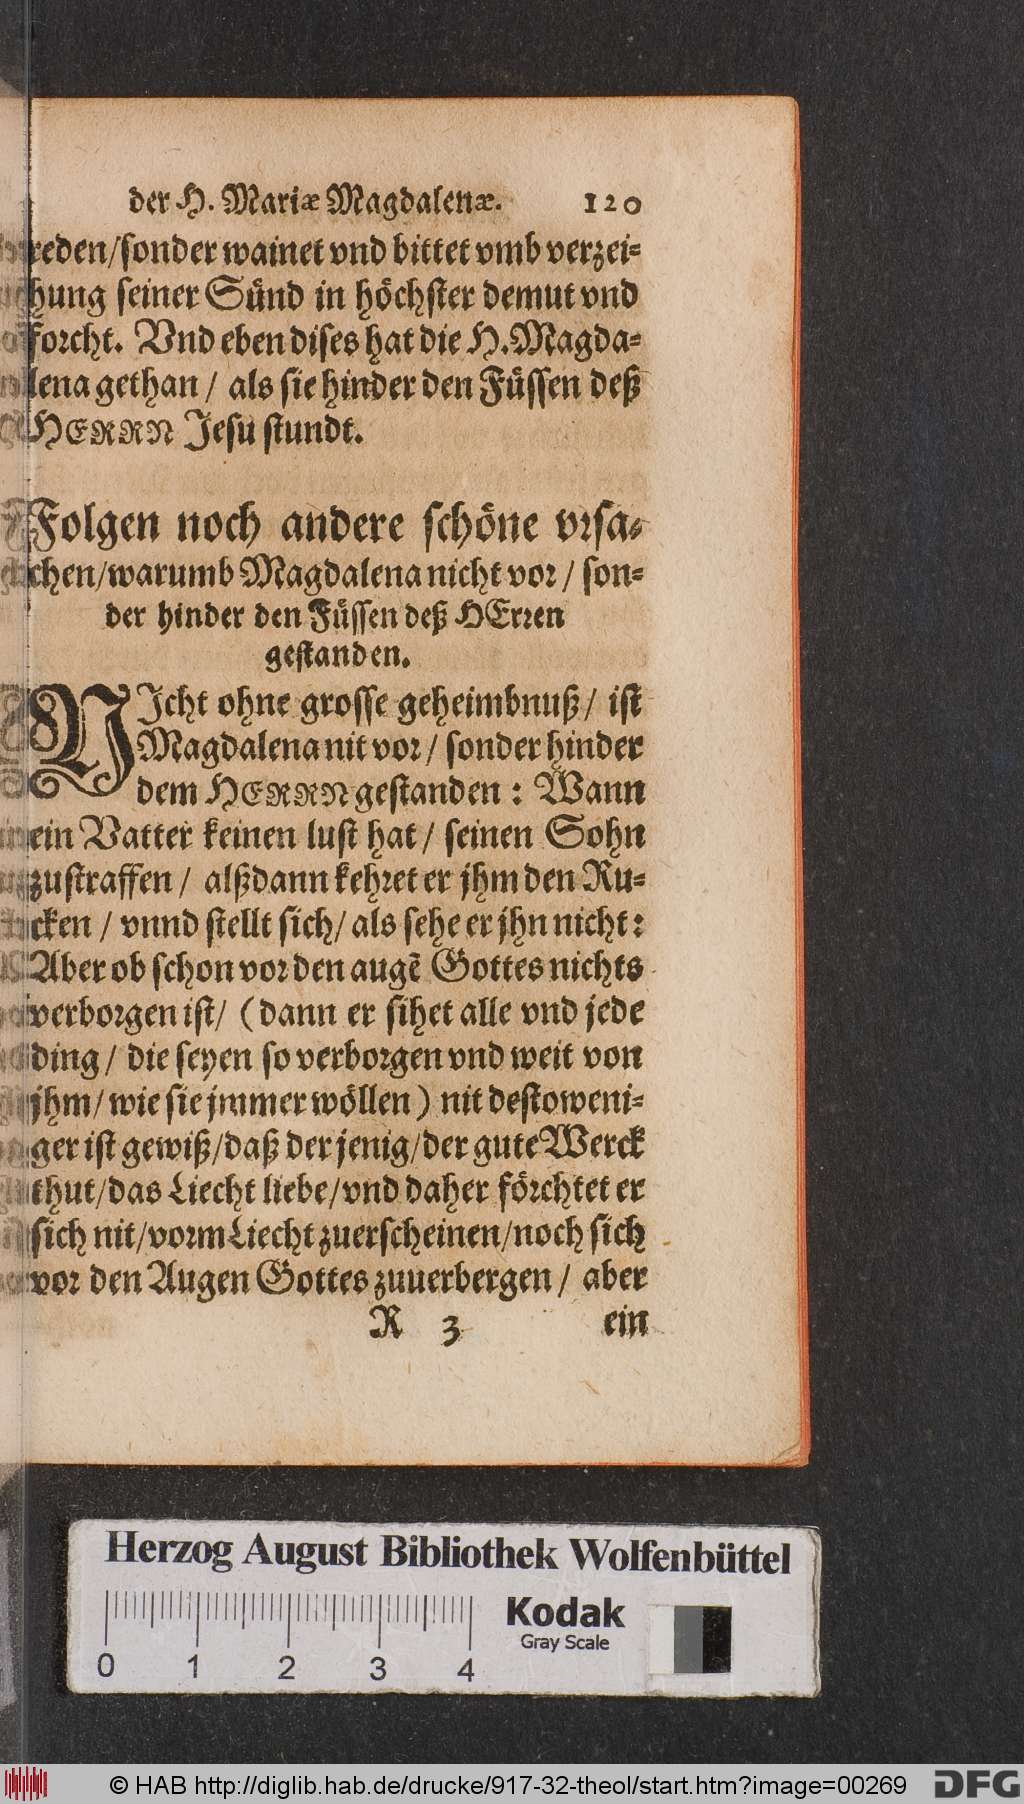 der H. Mariæ Magdalenæ. 120
reden/sonder wainet vnd bittet vmb verzei⸗
hung seiner Sünd in höchster demut vnd
forcht. Vnd eben dises hat die H. Magda⸗
lena gethan / als sie hinder den Füssen deß
HERRN Jesu stundt.
Folgen noch andere schöne vrsa⸗
chen/warumb Magdalena nicht vor / son⸗
der hinder den Füssen deß HErren
gestanden.
NIcht ohne grosse geheimbnuß / ist
Magdalena nit vor / sonder hinder
dem HERRN gestanden : Wann
ein Vatter keinen lust hat / seinen Sohn
zustraffen / alßdann kehret er jhm den Ru⸗
cken / vnnd stellt sich/ als sehe er jhn nicht:
Aber ob schon vor den augẽ Gottes nichts
verborgen ist/ (dann er sihet alle vnd jede
ding / die seyen so verborgen vnd weit von
jhm/ wie sie jmmer wöllen) nit destoweni⸗
ger ist gewiß/daß der jenig/der gute Werck
thut/das Liecht liebe/vnd daher förchtet er
sich nit/vorm Liecht zuerscheinen/noch sich
vor den Augen Gottes zuuerbergen / aber
R 3 ein
Herzog August Bibliothek Wolfenbüttel
Kodak
Gray Scale
0 1 2 3 4
© HAB http://diglib.hab.de/drucke/917-32-theol/start.htm?image=00269 DFG